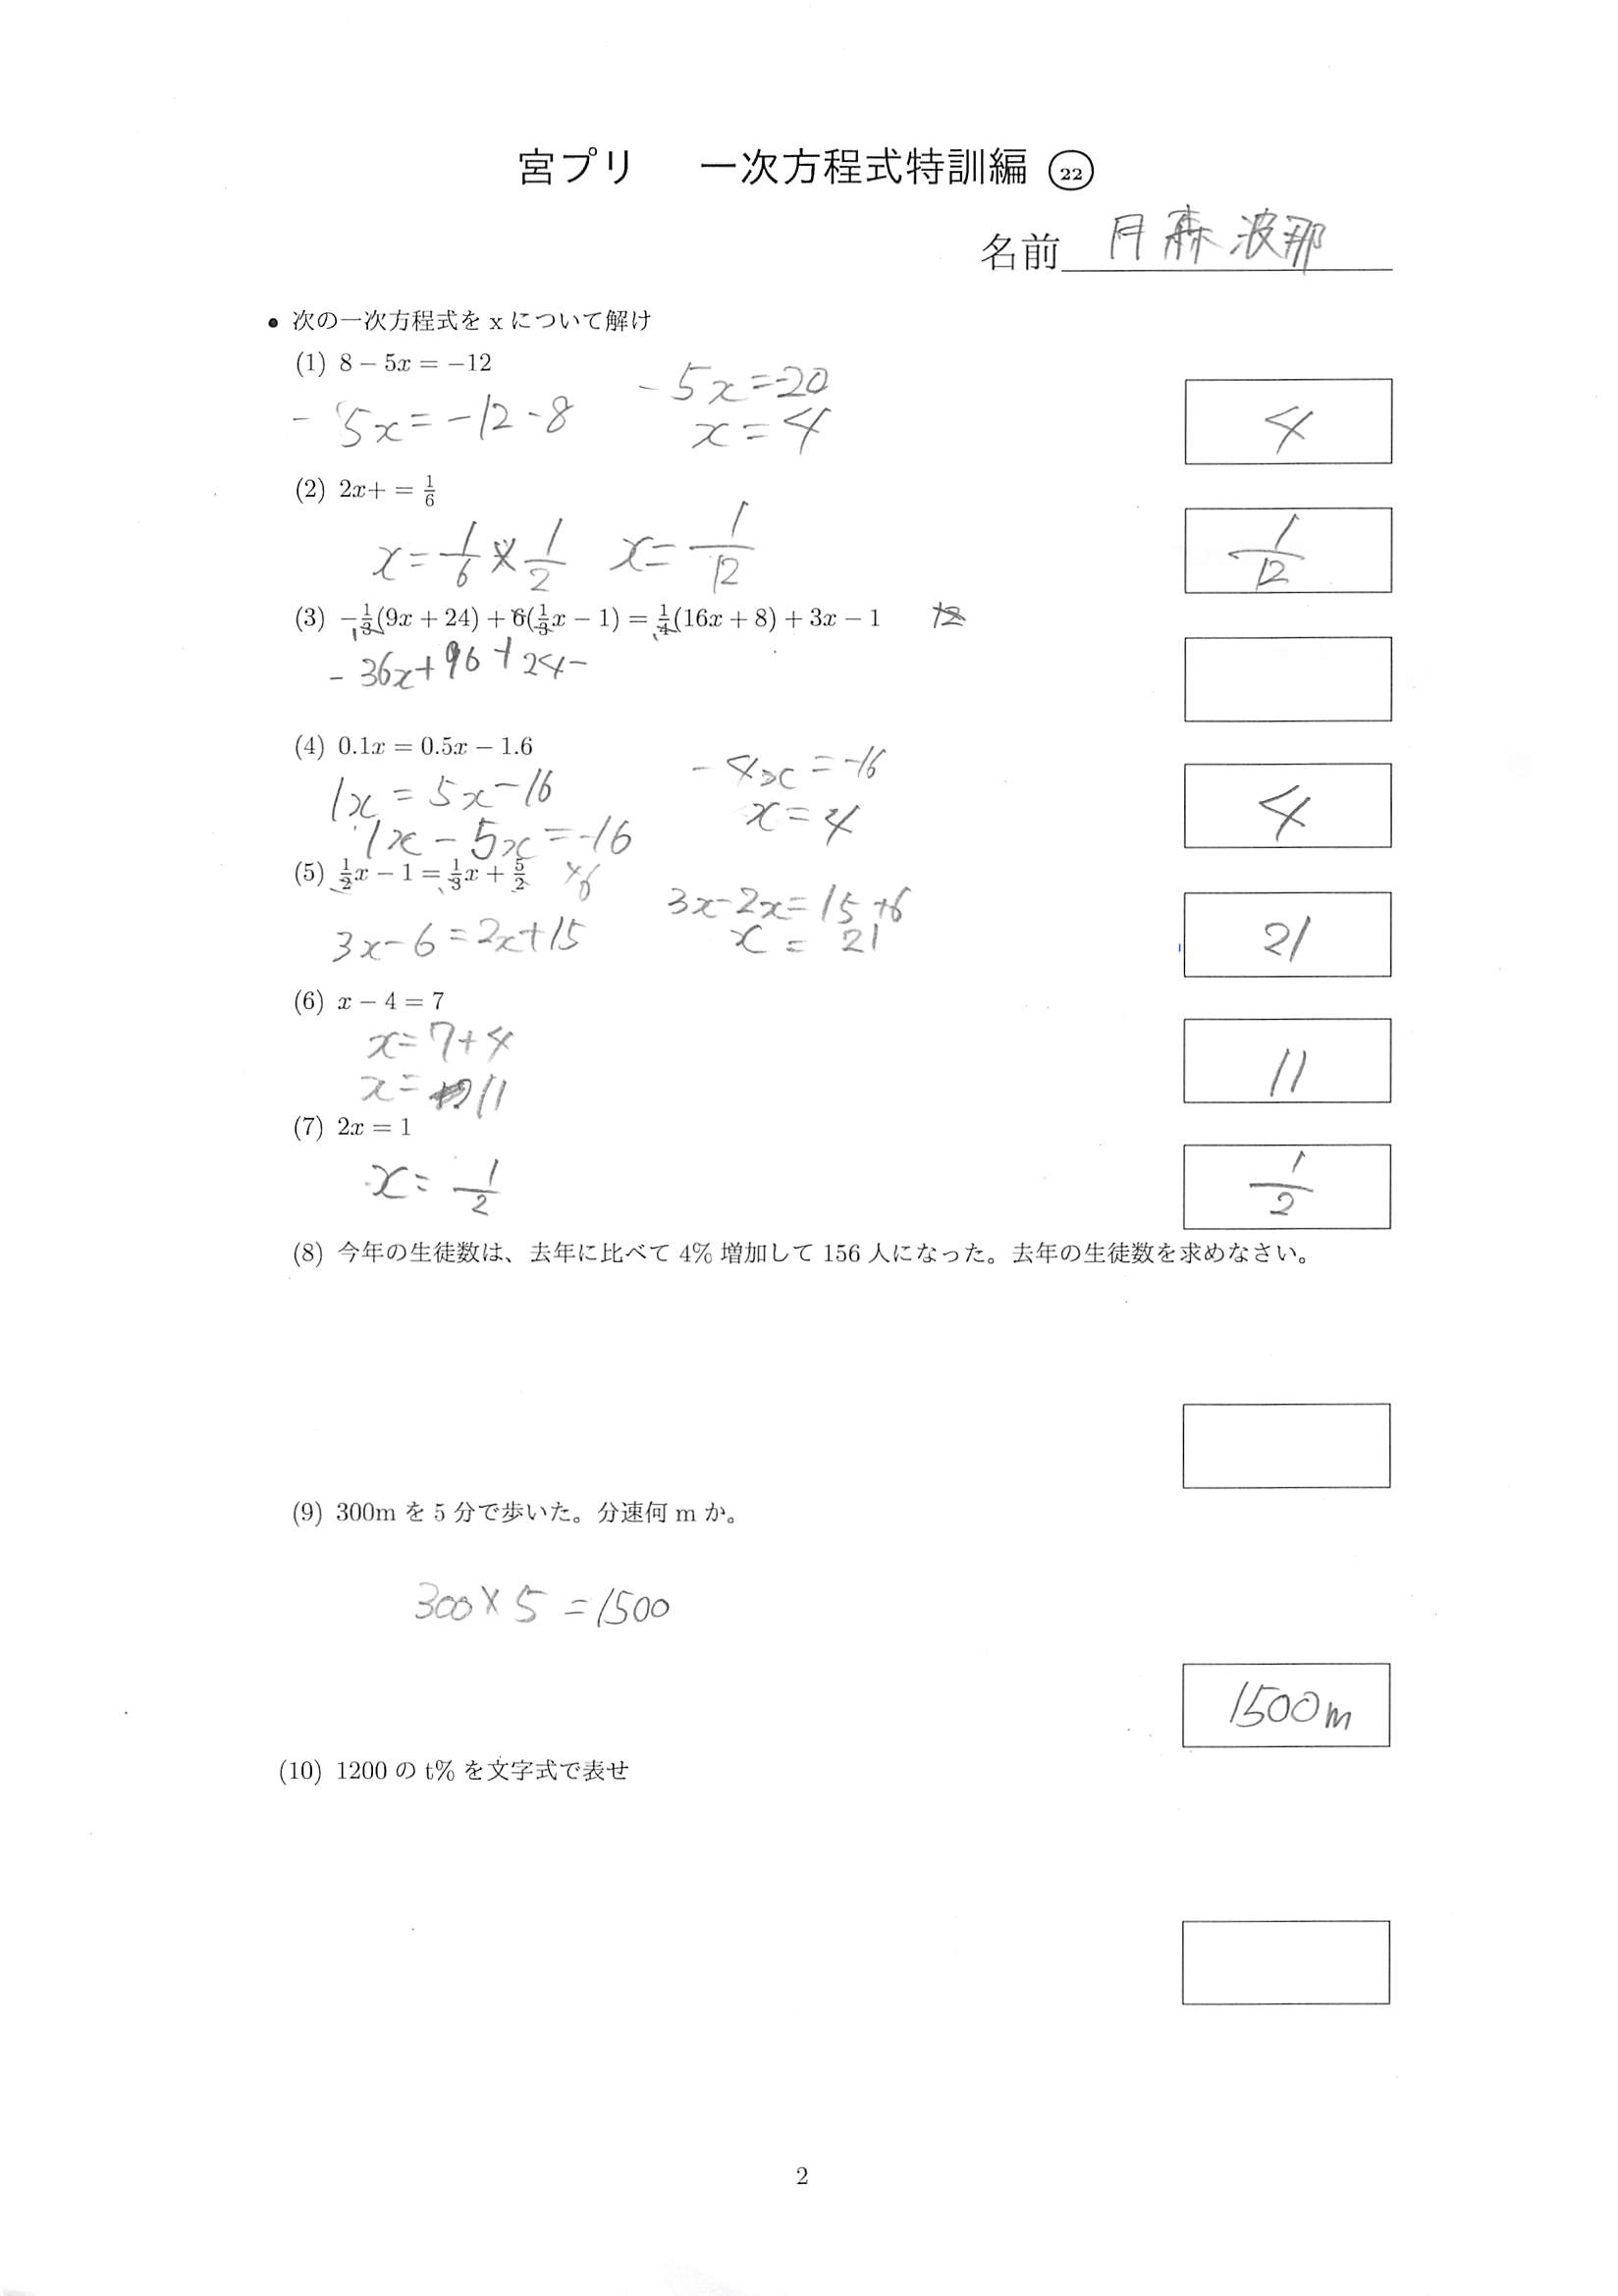 宮プリ 一次方程式特訓編 22
名前 月森 波那
• 次の一次方程式を x について解け
(1) 8 − 5x = −12
- 5x = -12 - 8
- 5x = -20
x = 4
4
(2) 2x+ = 1/6
x = 1/6 × 1/2 x = 1/12
1/12
(3) −1/3(9x + 24) + 6(1/3x − 1) = 1/4(16x + 8) + 3x − 1
- 36x + 96 + 24 -
(4) 0.1x = 0.5x − 1.6
1x = 5x - 16
1x - 5x = -16
- 4x = -16
x = 4
4
(5) 1/2x − 1 = 1/3x + 5/2 ×6
3x - 6 = 2x + 15
3x - 2x = 15 + 6
x = 21
21
(6) x − 4 = 7
x = 7 + 4
x = 11
11
(7) 2x = 1
x = 1/2
1/2
(8) 今年の生徒数は、去年に比べて 4% 増加して 156 人になった。去年の生徒数を求めなさい。
(9) 300m を 5 分で歩いた。分速何 m か。
300 × 5 = 1500
1500m
(10) 1200 の t% を文字式で表せ
2